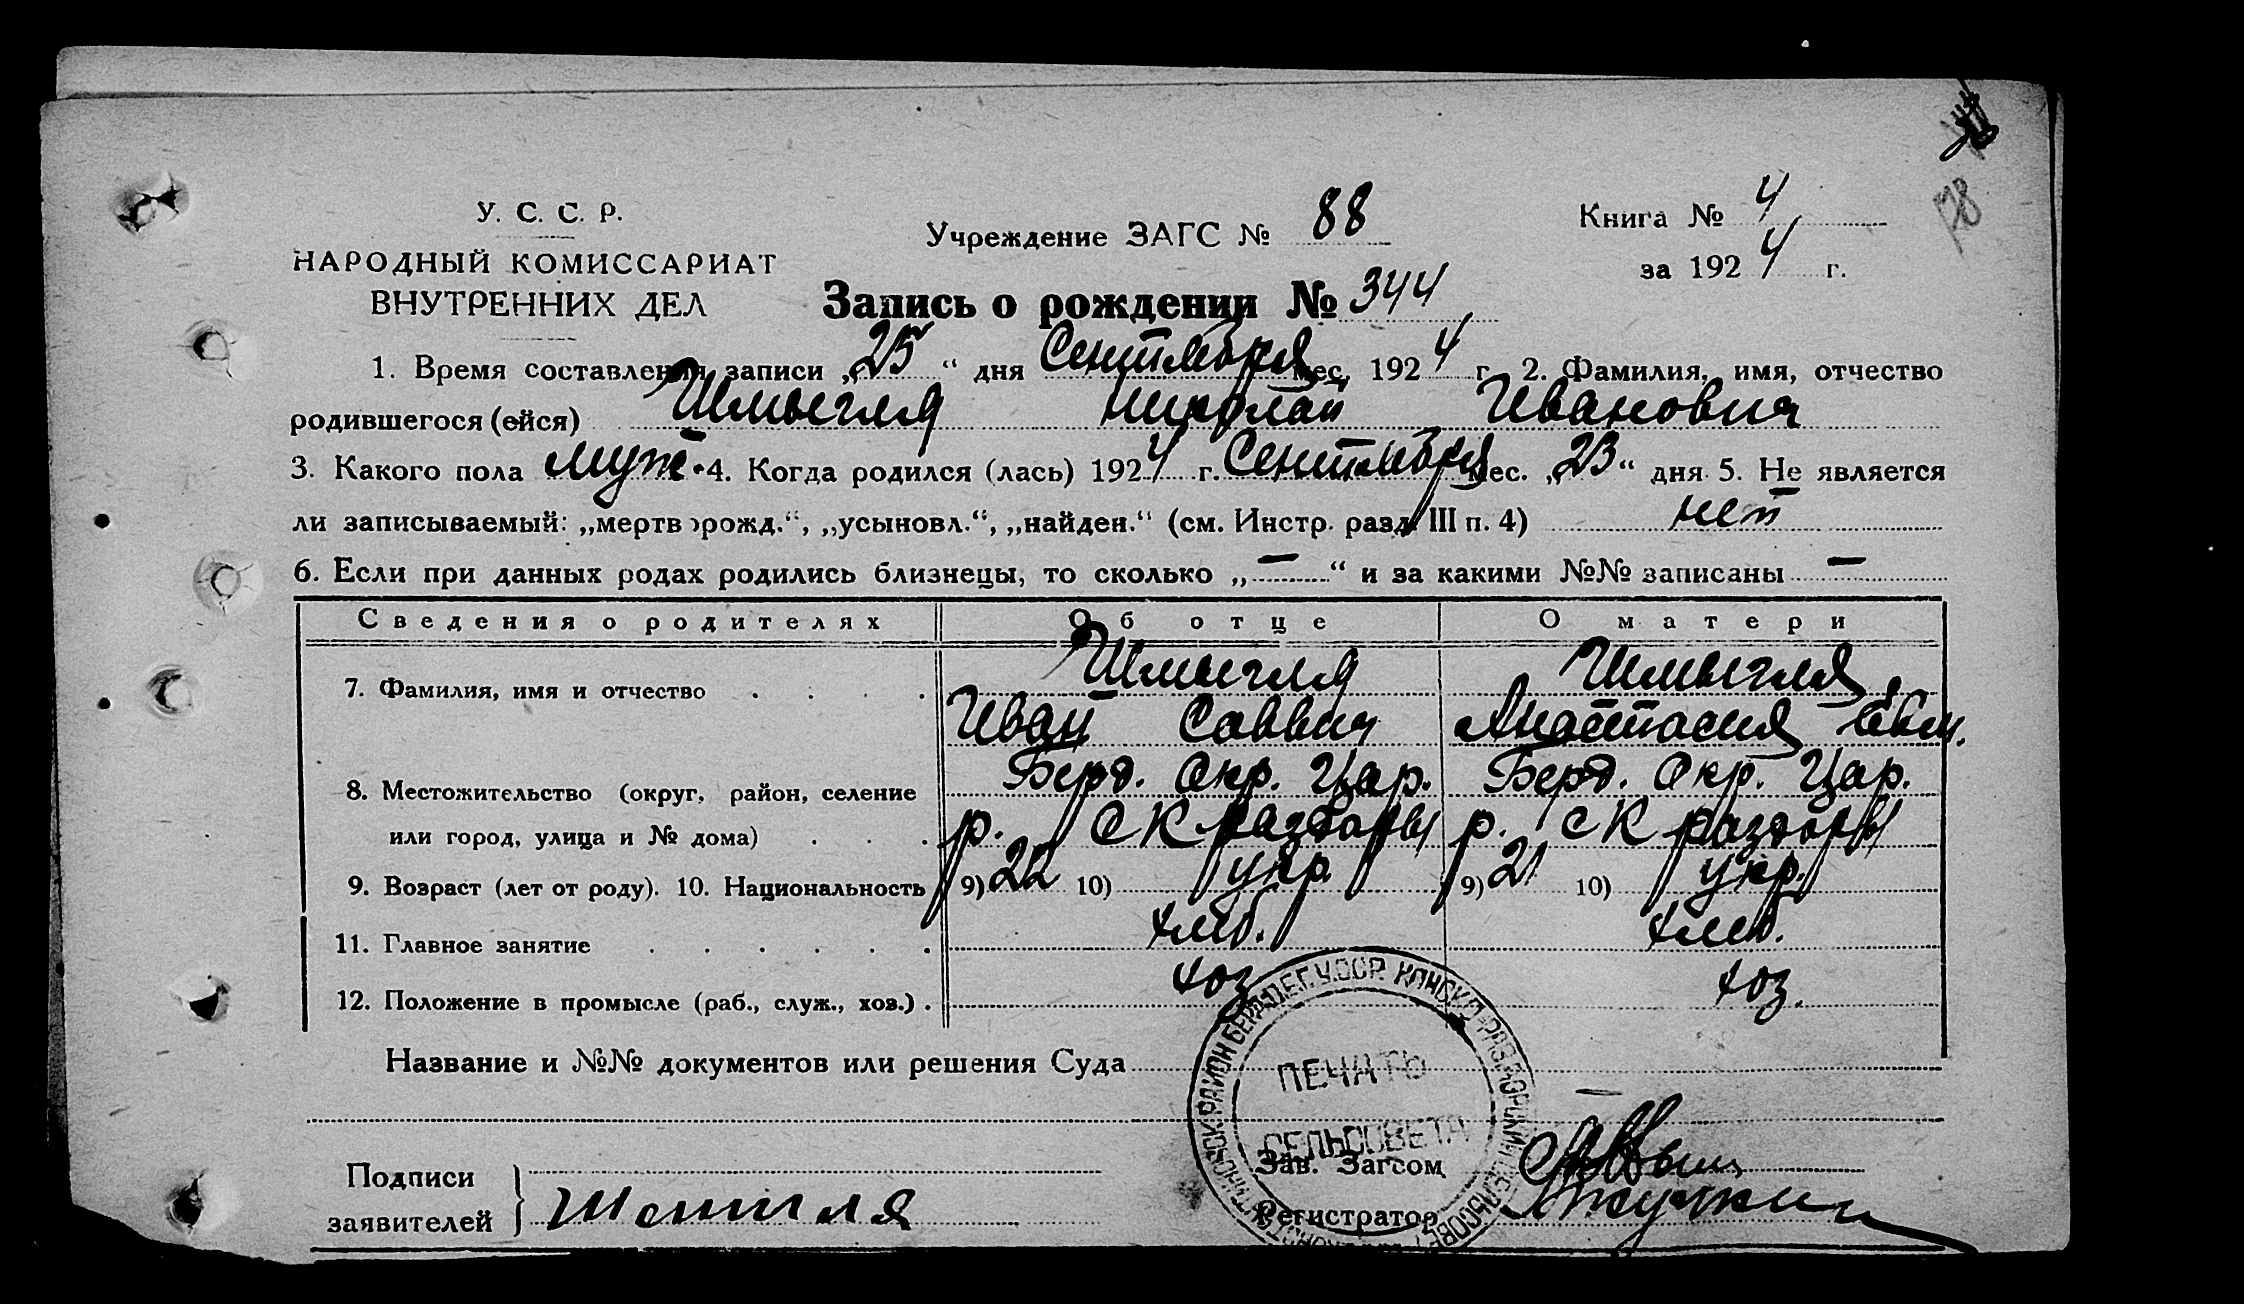 78
У. С. С. Р.
НАРОДНЫЙ КОМИССАРИАТ
ВНУТРЕННИХ ДЕЛ
Учреждение ЗАГС № 88
Книга № 4
за 1924 г.
Запись о рождении № 344
1. Время составления записи „25“ дня Сентября мес. 1924 г. 2. Фамилия, имя, отчество
родившегося (ейся) Шмыгля Николай Иванович
3. Какого пола муж. 4. Когда родился (лась) 1924 г. Сентября мес. „23“ дня 5. Не является
ли записываемый: „мертворожд.“, „усыновл.“, „найден.“ (см. Инстр. разд. III п. 4) нет
6. Если при данных родах родились близнецы, то сколько „—“ и за какими №№ записаны —
Сведения о родителях Об отце О матери
7. Фамилия, имя и отчество Шмыгля Шмыгля
Иван Саввич Анастасия
8. Местожительство (округ, район, селение Берд. Окр. Цар. Берд. Окр. Цар.
или город, улица и № дома) р. С К раздоры р. С К раздоры
9. Возраст (лет от роду). 10. Национальность 9) 22 10) укр. 9) 21 10) укр.
11. Главное занятие хлеб. хлеб.
12. Положение в промысле (раб., служ., хоз.) хоз хоз.
Название и №№ документов или решения Суда —
ПЕЧАТЬ
СЕЛЬСОВЕТА
Подписи
заявителей
Зав. Загсом
Регистратор